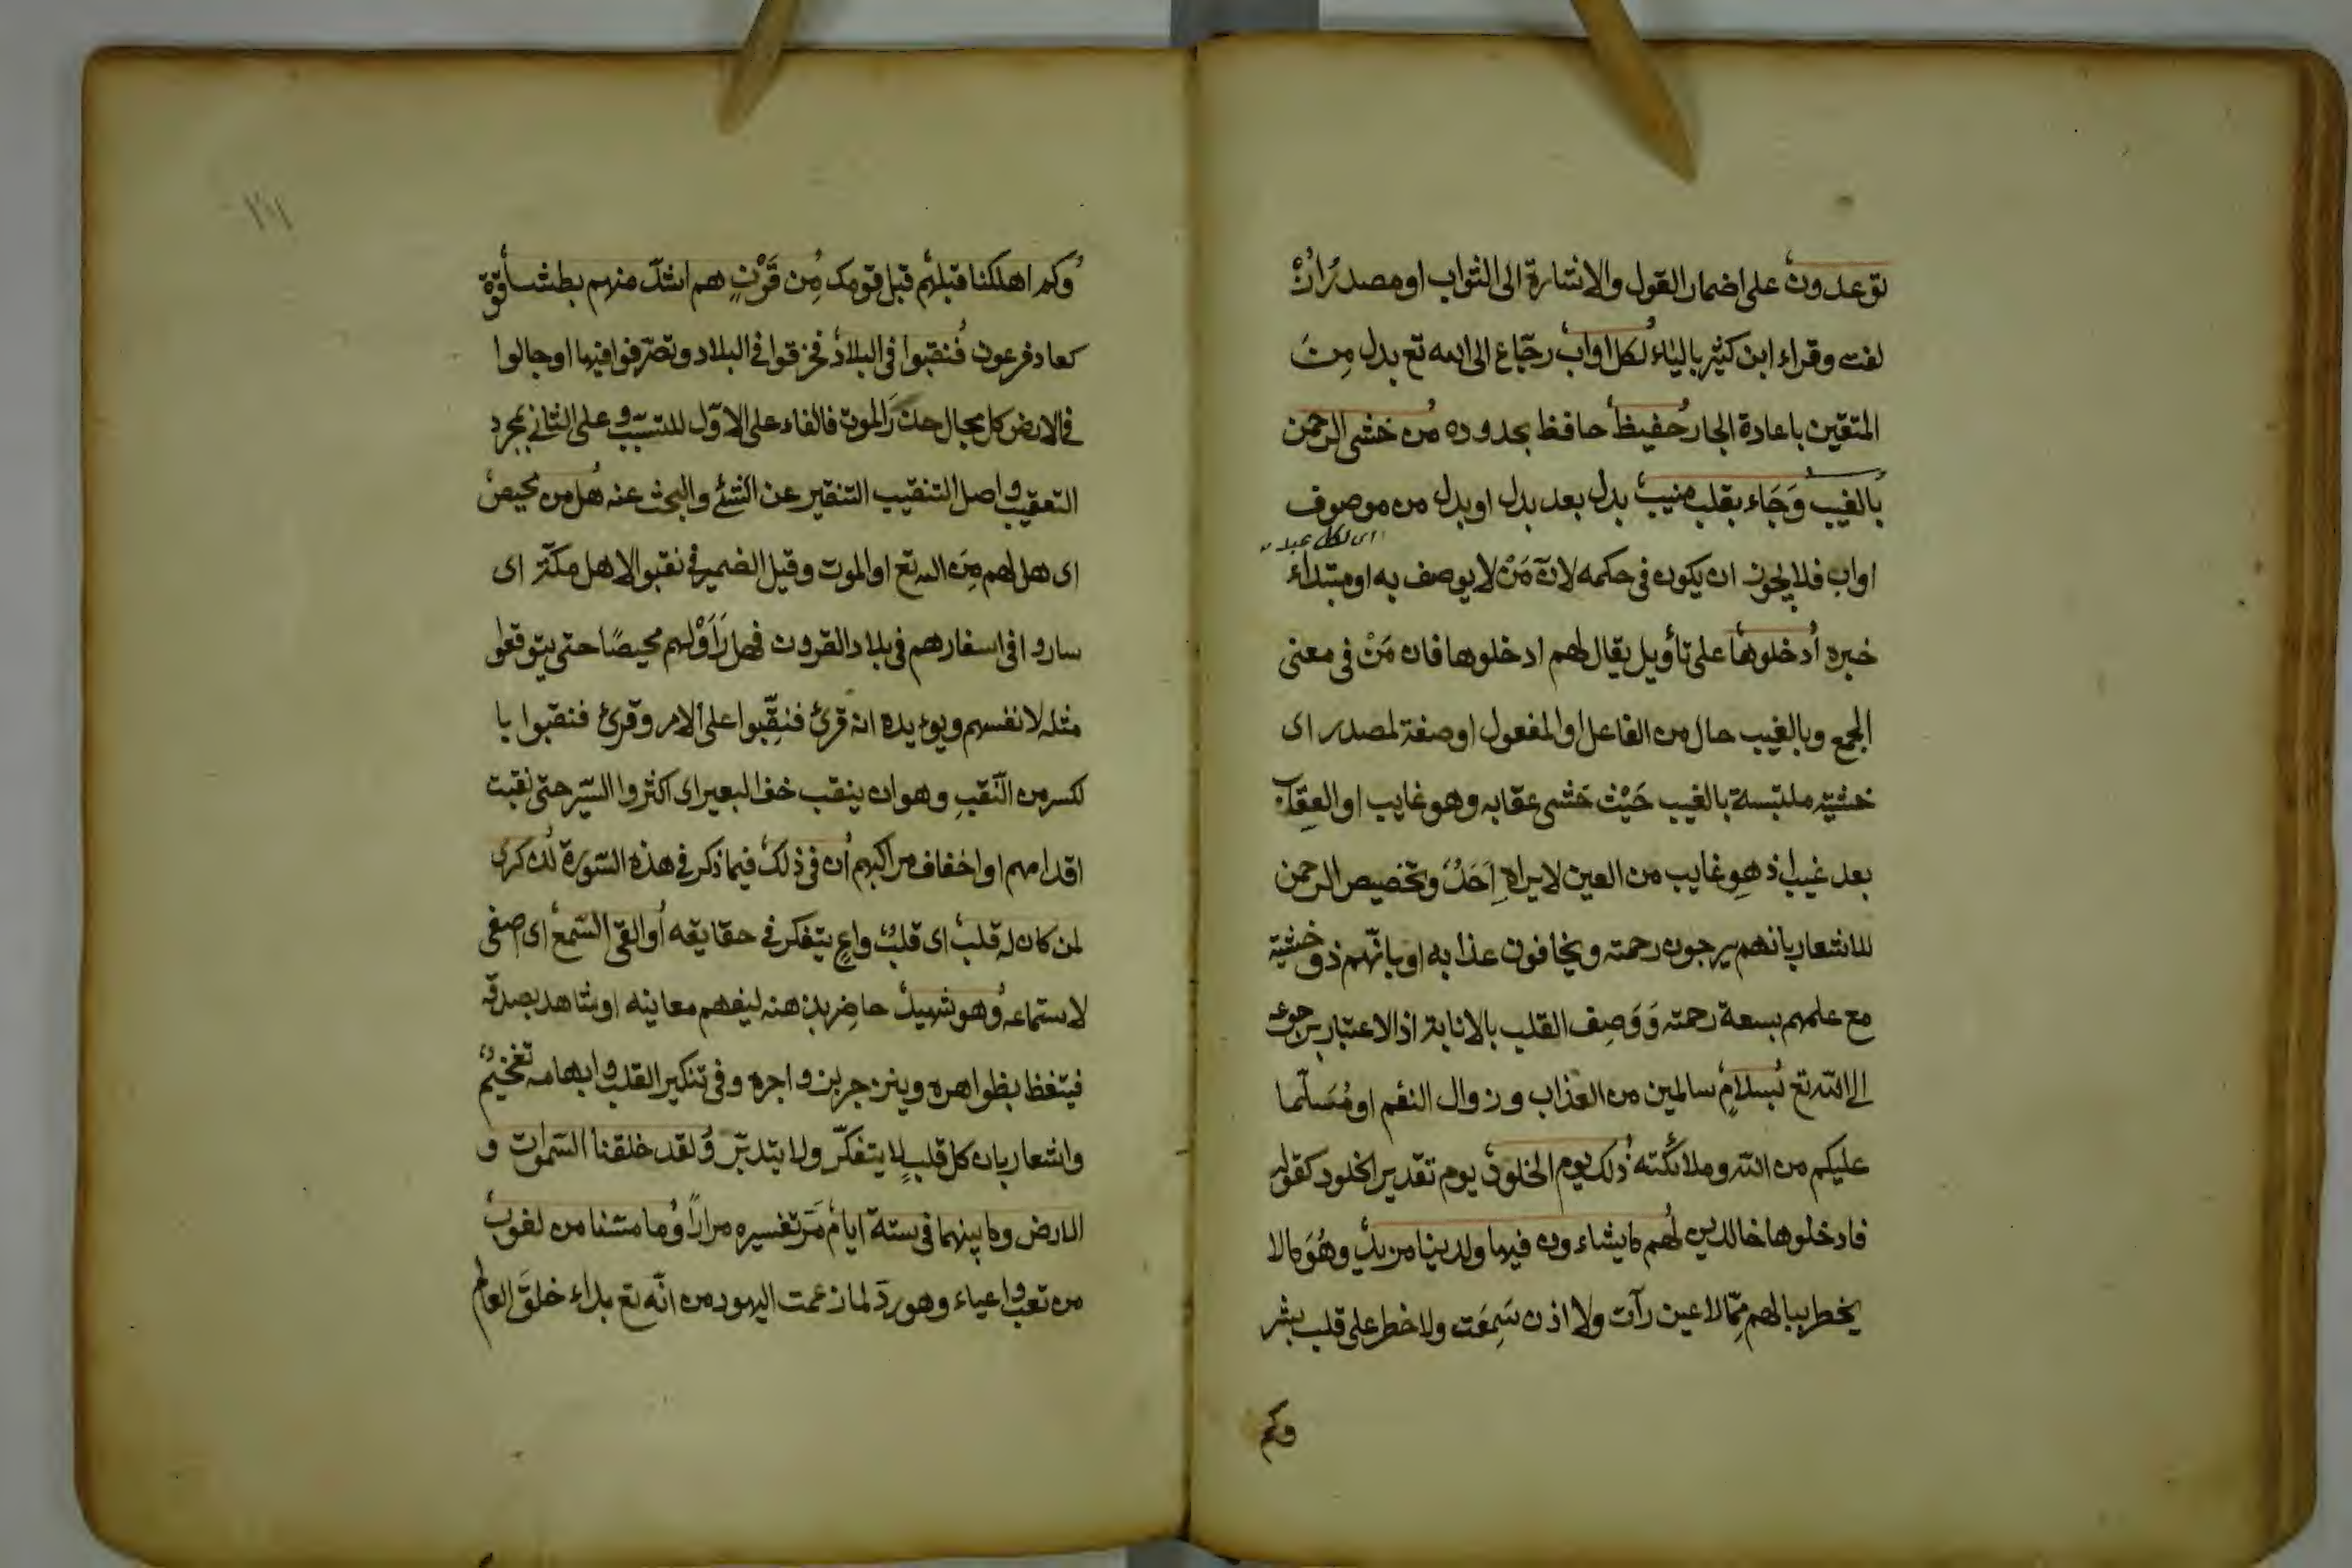 توعدون على اضمار القول والاشارة الى الثواب او مصدر ازلفت
لفت وقراء ابن كثير بالياء لكل اواب رجّاع الى الله تع بدل مِنَ
المتقين باعادة الجار حفيظ حافظ بحدوده من خشى الرحمن
بالغيب وَجَاء بقلب منيب بدل بعد بدل او بدل من موصوف
اى لكل عبد
اواب فلا يجوز ان يكون فى حكمه لانّ مَنْ لا يوصف به او مبتداء
خبره اُدخلوها على تأويل يقال لهم ادخلوها فان مَنْ فى معنى
الجمع وبالغيب حال من الفاعل او المفعول او صفة لمصدر اى
خشية ملتبسة بالغيب حَيْث خشى عقابه وهو غايب او العِقاب
بعد غيب اذ هو غايب من العين لا يراه اَحَدٌ وتخصيص الرحمن
للاشعار بانهم يرجون رحمته ويخافون عذابه او بانّهم ذو خشية
مع علمهم بسعة رحمته وَوَصِف القلب بالانابة اذ الاعتبار برجوعه
الى الله تع بسلامٍ سالمين من العذاب وزوال النعم او مُسَلّما
عليكم من الله وملائكته ذلك يوم الخلود يوم تقدير الخلود كقوله
فادخلوها خالدين لهم ما يشاءون فيها ولدينا مزيد وهُوَ ما لا
يخطر ببالهم مِمّا لا عين رآت ولا اذن سَمِعَت ولا خطر على قلب بشر
وكم
وكم اهلكنا قبلهم قبل قومك مِن قَرْنٍ هم اشدّ منهم بطشا قوة
كعاد وفرعون فنقبوا فى البلاد فخرقوا فى البلاد وتصرّفوا فيها او جالوا
فى الارض كل مجال حذَرَ الموت فالفاء على الاوّل للتسبّب وعلى الثانى لمجرد
التعقيب واصل التنقيب التنقير عن الشئ والبحث عنه هل من محيص
اى هل لهم مِنَ الله تع او الموت وقيل الضمير فى نقبوا لاهل مكّة اى
ساروا فى اسفارهم فى بلاد القرون فهل رَاَوْا لهم محيصًا حتى يتوقعوا
مثله لانفسهم ويؤيده انه قرئ فنقِّبوا على الامر وقرئ فنقبوا با
لكسر من النّقبِ وهو ان ينقب خف البعير اى اكثروا السّير حتى نقبت
اقدامهم او اخفاف مراكبهم اُن فى ذلك فيما ذكر فى هذه السّورة لذكرى
لمن كان له قلب اى قلبٌ واعٍ يتفكر فى حقايقه او القى السّمع اى اصغى
لاستماعه وهو شهيد حاضِر بذهنه ليفهم معاينه او شاهد بصدقه
فيتغظ بظواهره وينزجر بزواجره وفى تنكير القلب وابهامه تفخيمٌ
واشعار بان كل قلبٍ لا يتفكّر ولا يتدبّر ولقد خلقنا السّموات و
الارض وما بينهما فى ستة ايام مَرّ تفسيره مرارًا وما مسّنا من لغوب
من تعب واعياء وهو ردّ لما زعمت اليهود من انّه تع بداء خلقَ العالم